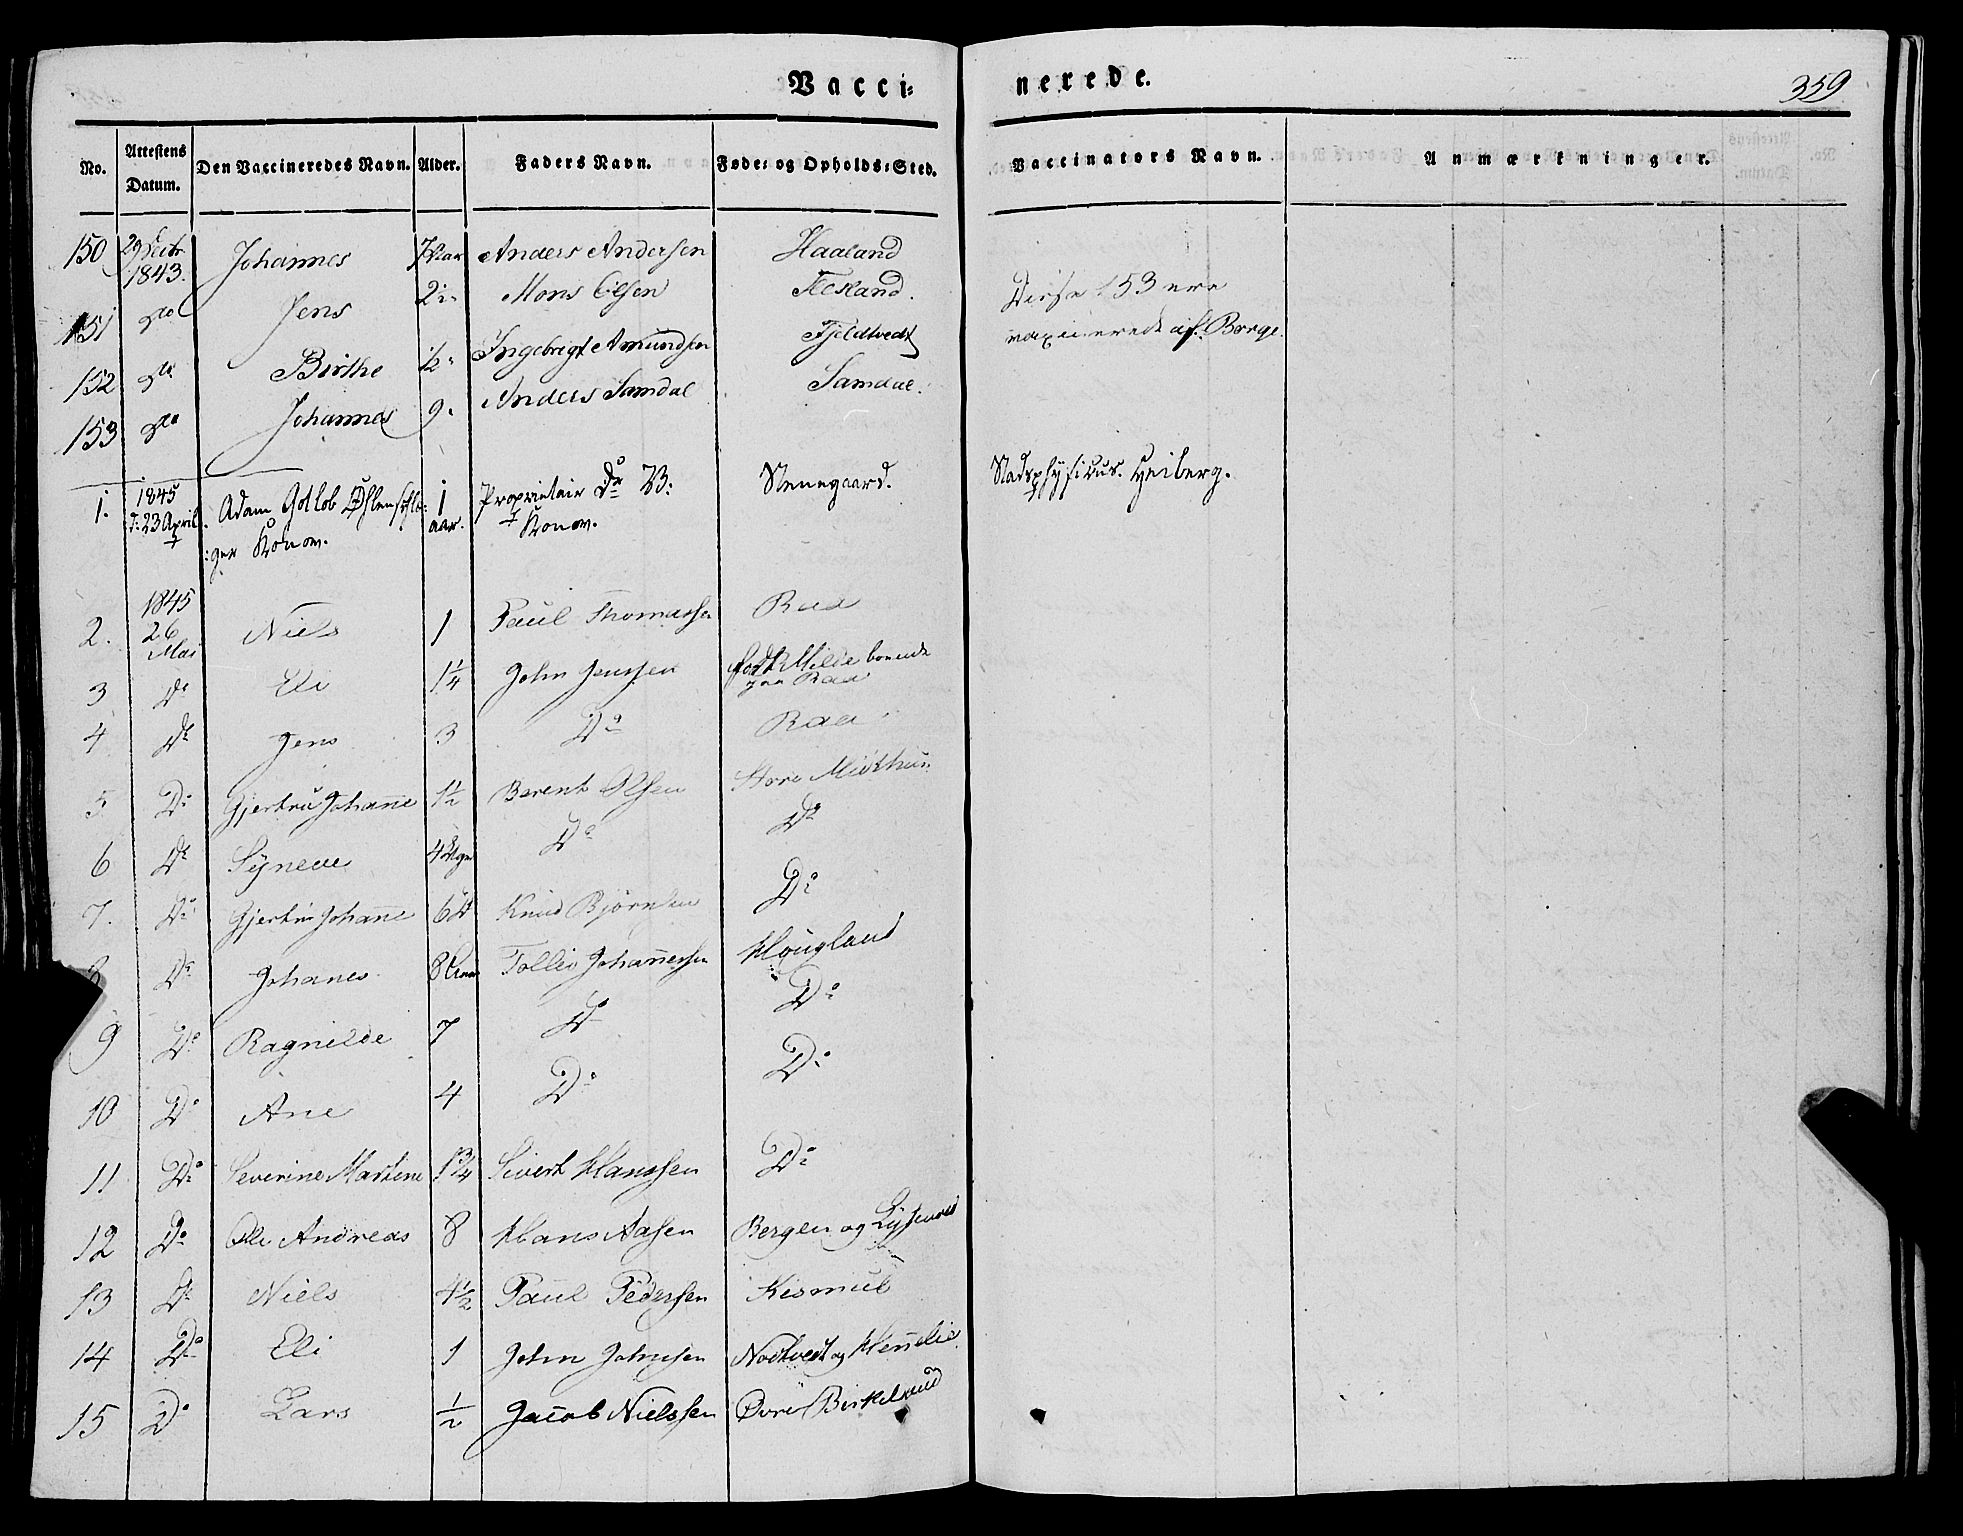 Vacci=
nerede.
359
No. Attestens Datum. Den Vaccineredes Navn. Alder. Faders Navn. Føde= og Opholds=Sted. Vaccinators Navn. Anmærkninger.
150 29 Decbr 1843. Johannes 7 Aar Anders Andersen Haaland
151 do Jens 2½ Mons Olsen
Disse 153 ere
152 do Birthe ½ Ingebrigt Amundsen Fjeldtvedt
vaxinerede af Børge
153 do Johannes 9 Anders Samdal Samdal
1. 1845 d: 23 April Adam Gotlob Øhlenschlæ= 1 aar. Proprietair Do W: Stenegaard. Stadsphysicus. Heiberg.
:ger Konow. Konow.
2. 1845 26 Mai Niels 1 Paul Thomassen Raa
3 Do Eli 1¼ John Jenssen født Milde boende paa Raa
4 Do Jens 3 Do Raa
5 Do Gjertru Johanne 1½ Berent Olsen Store Midthun
6 Do Syneve 4 Do Do
7. Do Gjertru Johanne 6 Do Knud Bjørnsen Do
8 Do Johanes 8 Tollev Johannessen Hougland
9 Do Ragnilde 7 Do Do
10 Do Ane 4 Do Do
11 Do Severine Martine 1¾ Sivert Hanssen Do
12 Do Ole Andreas 8 Hans Aasen Bergen og
13 Do Niels 4½ Paul Pedersen Kismul
14 Do Eli 1 John Johnsen Nodtvedt og
15 Do Lars ½ Jacob Nielssen Øvre Birkeland